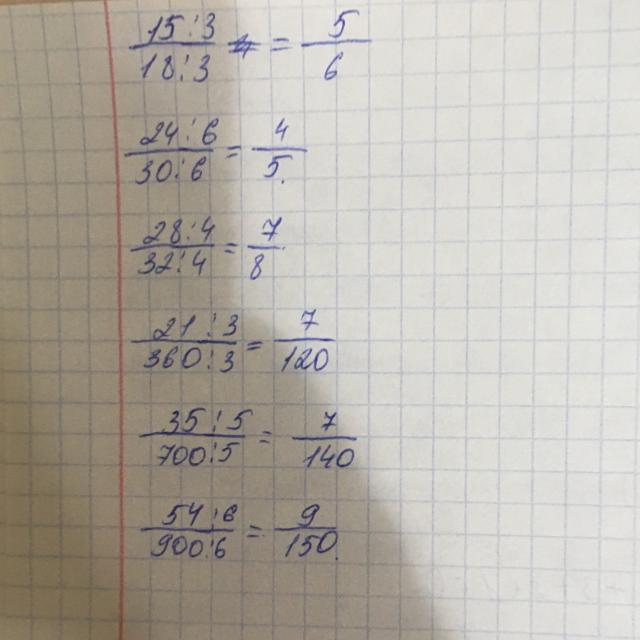 15:3
18:3 = 5
6
24:6
30:6 = 4
5.
28:4
32:4 = 7
8
21:3
360:3 = 7
120
35:5
700:5 = 7
140
54:6
900:6 = 9
150.